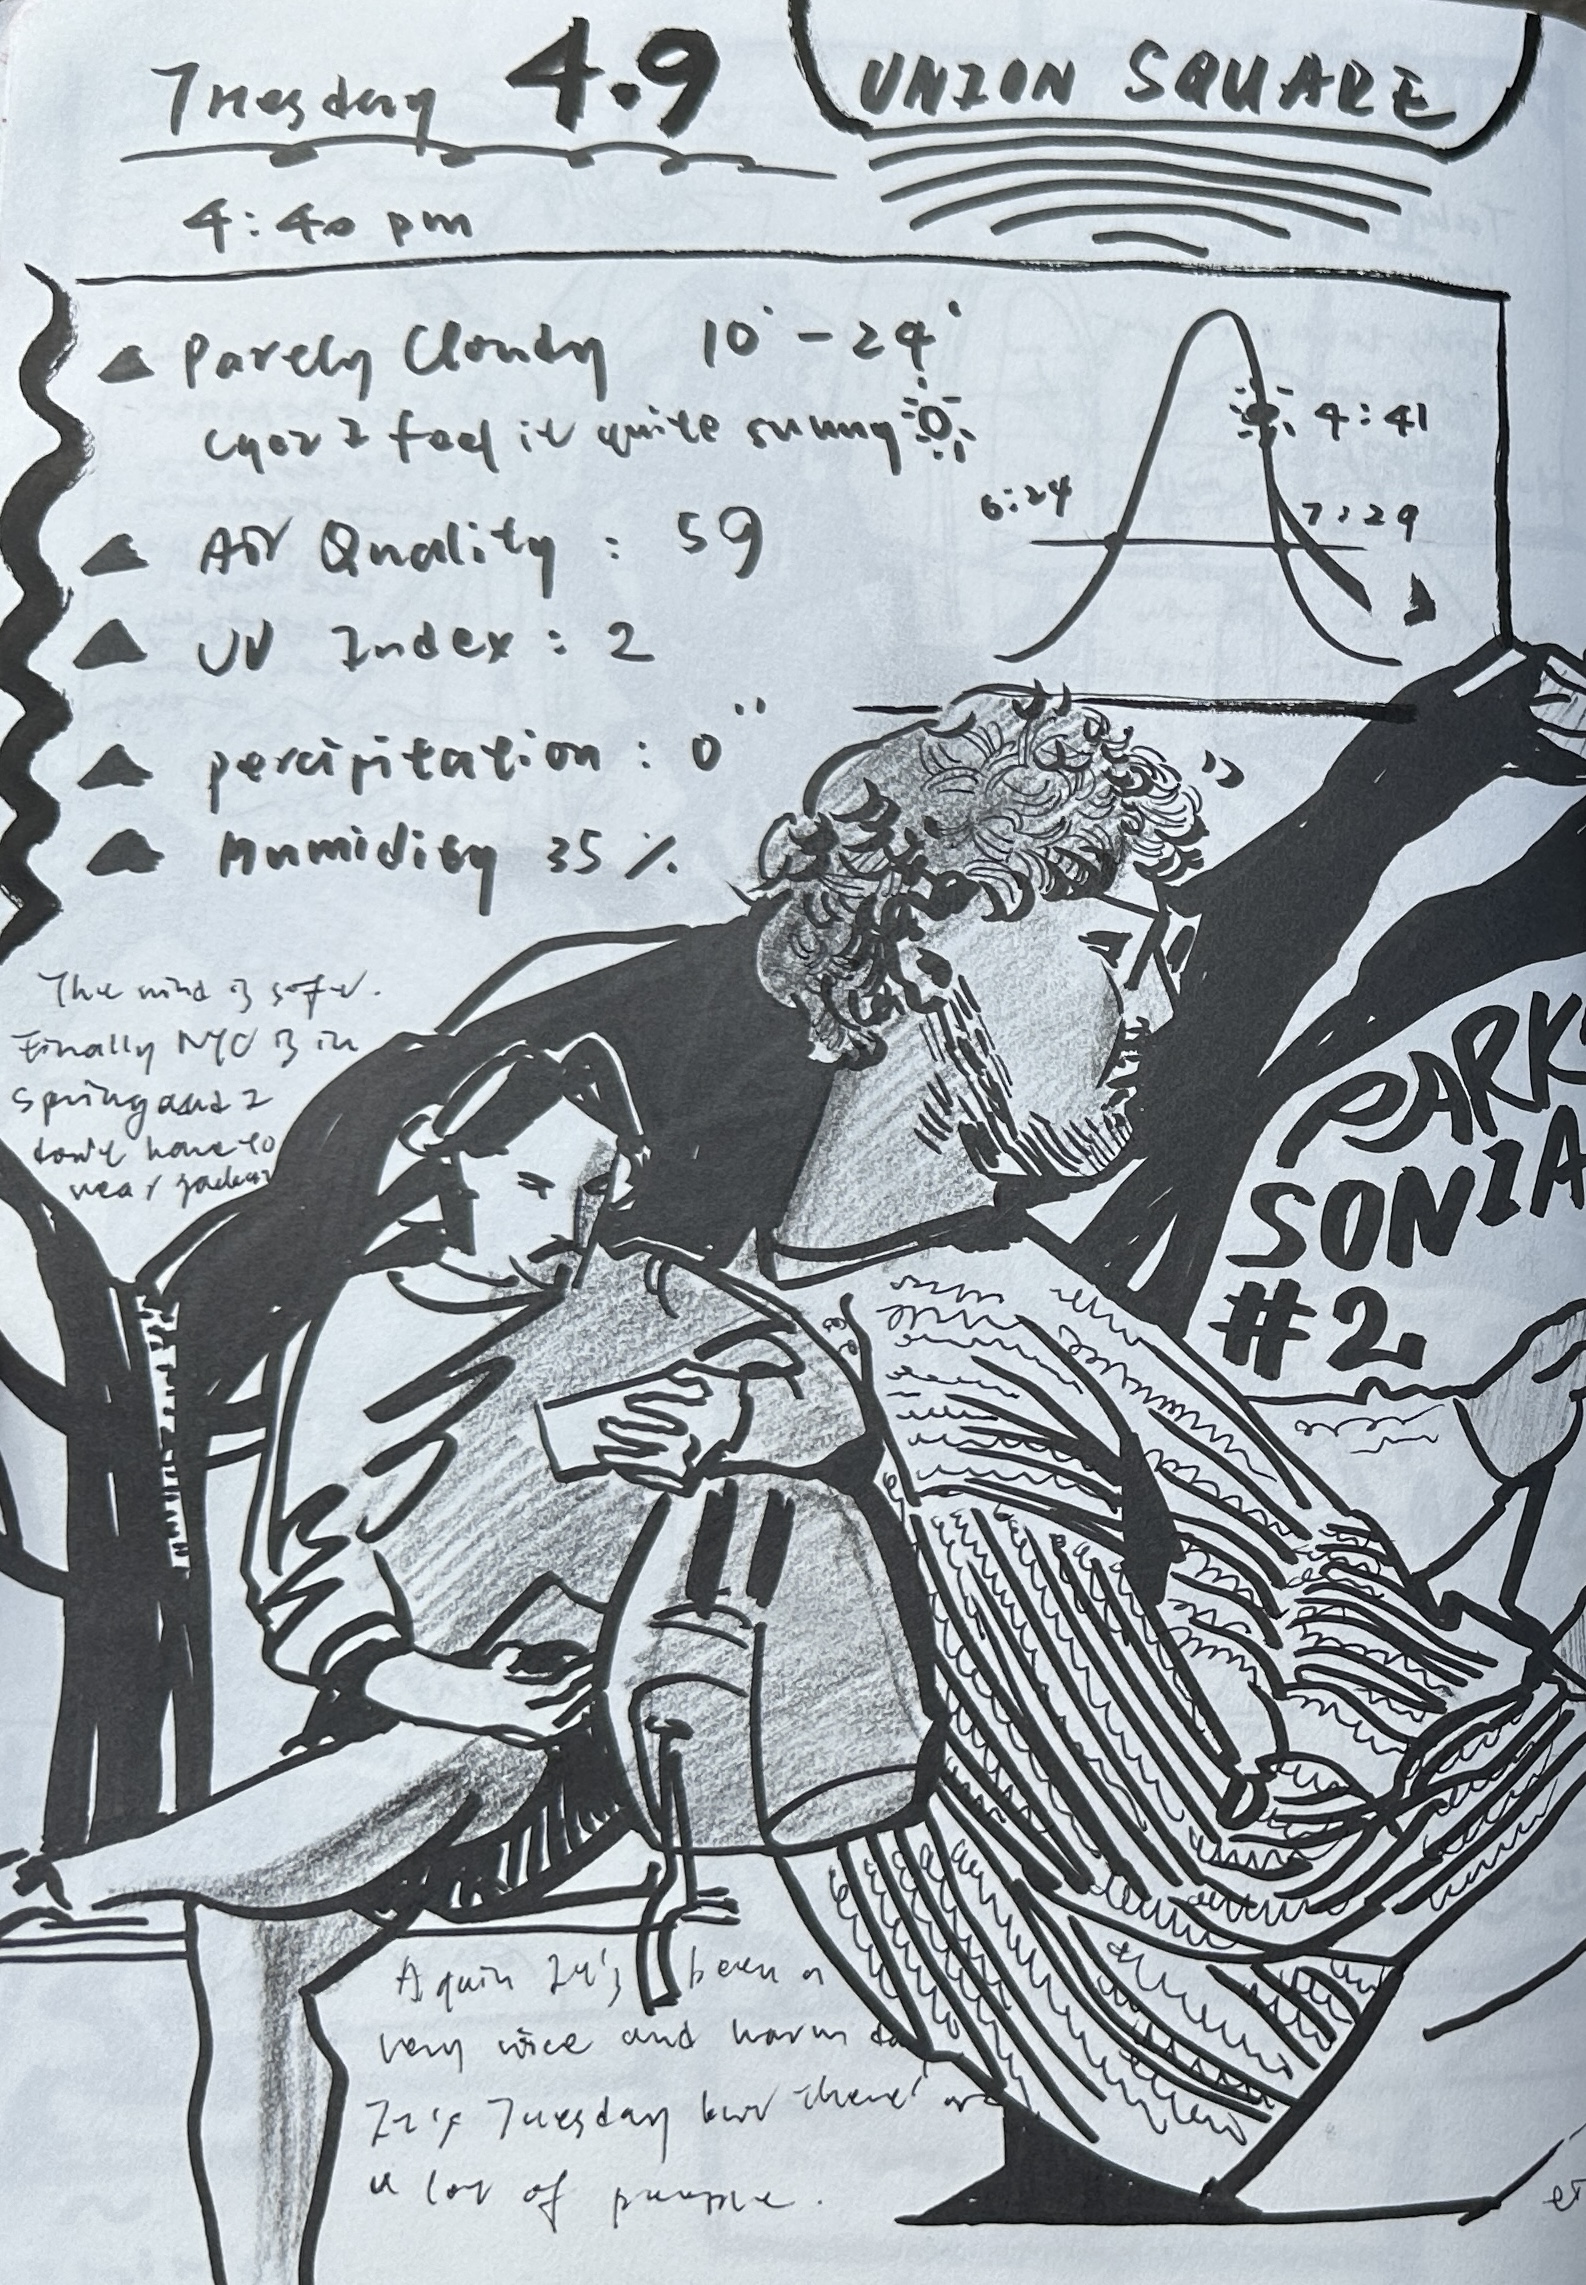 Tuesday 4.9
UNION SQUARE
4:40 pm
Parely Cloudy 10° - 24°
I feel it quite sunny
4:41
6:24
7:29
Air Quality : 59
UV Index : 2
percipitation : 0"
Humidity 35 %
The wind is softer.
Finally NYC is in
spring and I
don't have to
wear
PARKS
SONIA
#2
Again It's been a
very nice and warm
It's Tuesday but there are
a lot of